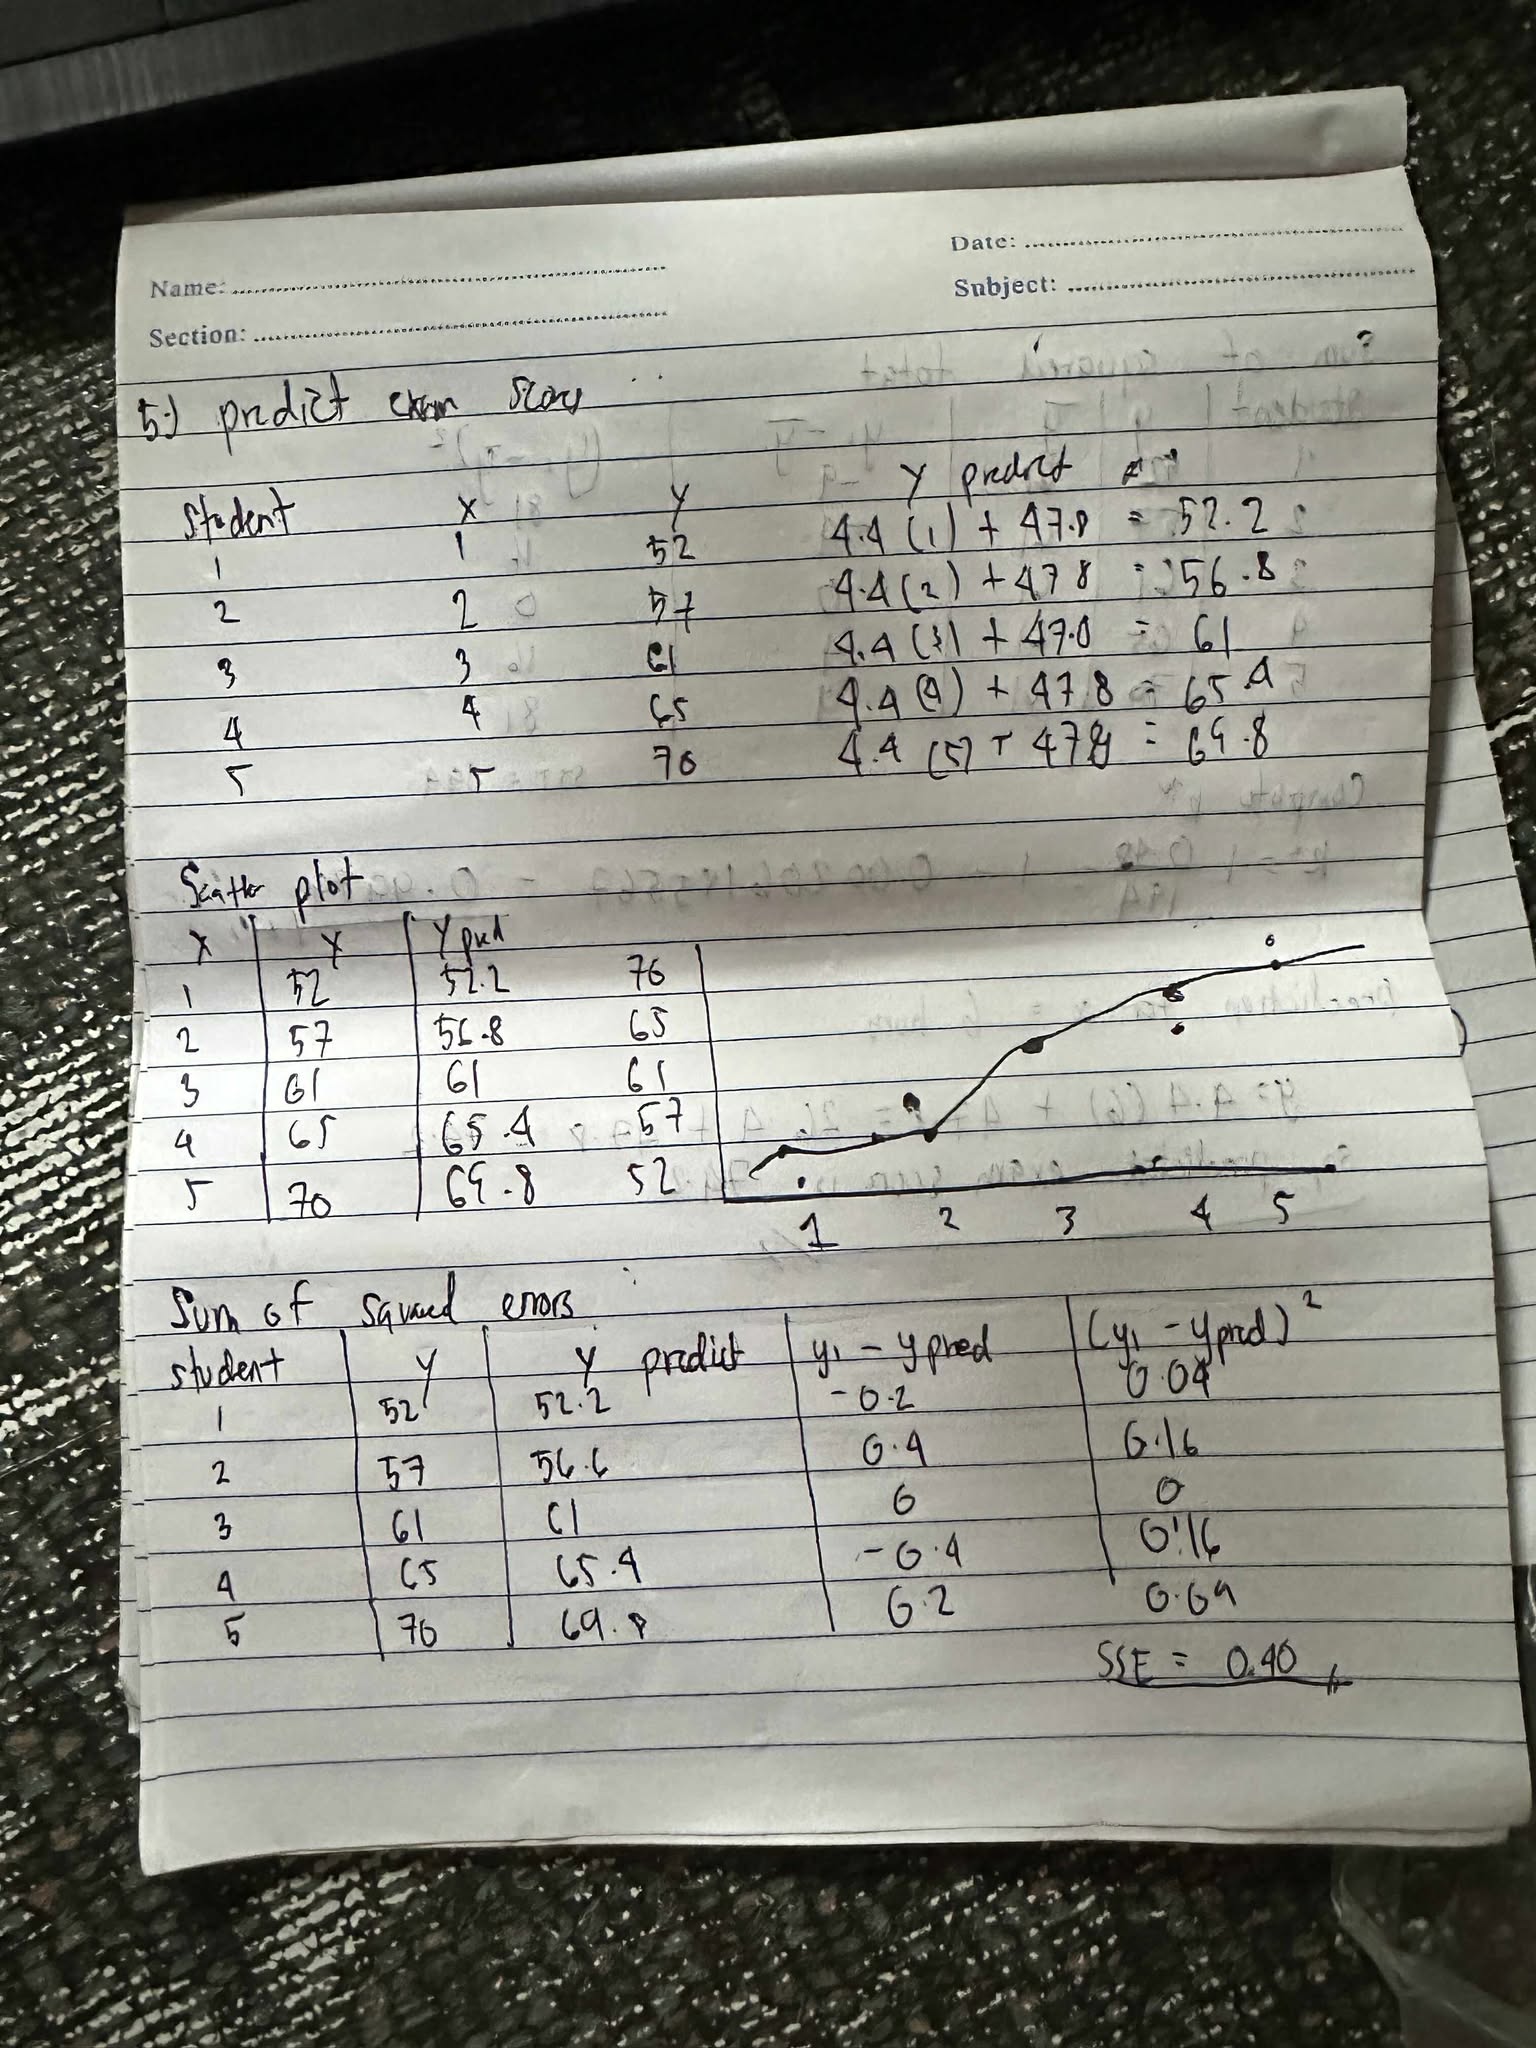 Name:
Date:
Section:
Subject:
5.) predict exam scores
Student X Y Y predict
1 1 52 4.4 (1) + 47.8 = 52.2
2 2 57 4.4 (2) + 47 8 = 56.8
3 3 61 4.4 (3) + 47.8 = 61
4 4 65 4.4 (4) + 47.8 = 65.4
5 5 70 4.4 (5) + 478 = 69.8
Scatter plot
X Y Y pred
1 52 52.2 70
2 57 56.8 65
3 61 61 61
4 65 65.4 57
5 70 69.8 52
1 2 3 4 5
Sum of squared errors
student Y Y predict y1 - y pred (y1 - y pred)²
1 52 52.2 -0.2 0.04
2 57 56.6 0.4 0.16
3 61 61 0 0
4 65 65.4 -0.4 0.16
5 70 69.8 0.2 0.04
SSE = 0.40